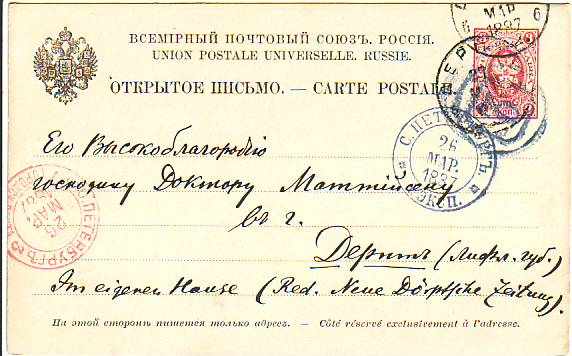 6 МАР. 1887 6
ВСЕМІРНЫЙ ПОЧТОВЫЙ СОЮЗЪ. РОССІЯ.
UNION POSTALE UNIVERSELLE. RUSSIE.
ОТКРЫТОЕ ПИСЬМО. — CARTE POSTALE.
С. ПЕТЕРБУРГЪ.
26
МАР.
1887
ЭКСП.
Его Высокоблагородію
господину Доктору Маттисену
въ г.
Дерптъ (Лифл. губ.)
Im eigenen Hause (Red. Neue Dörptsche Zeitung).
С. ПЕТЕРБУРГЪ
26
МАР
На этой сторонѣ пишется только адресъ. — Côté réservé exclusivement à l'adresse.